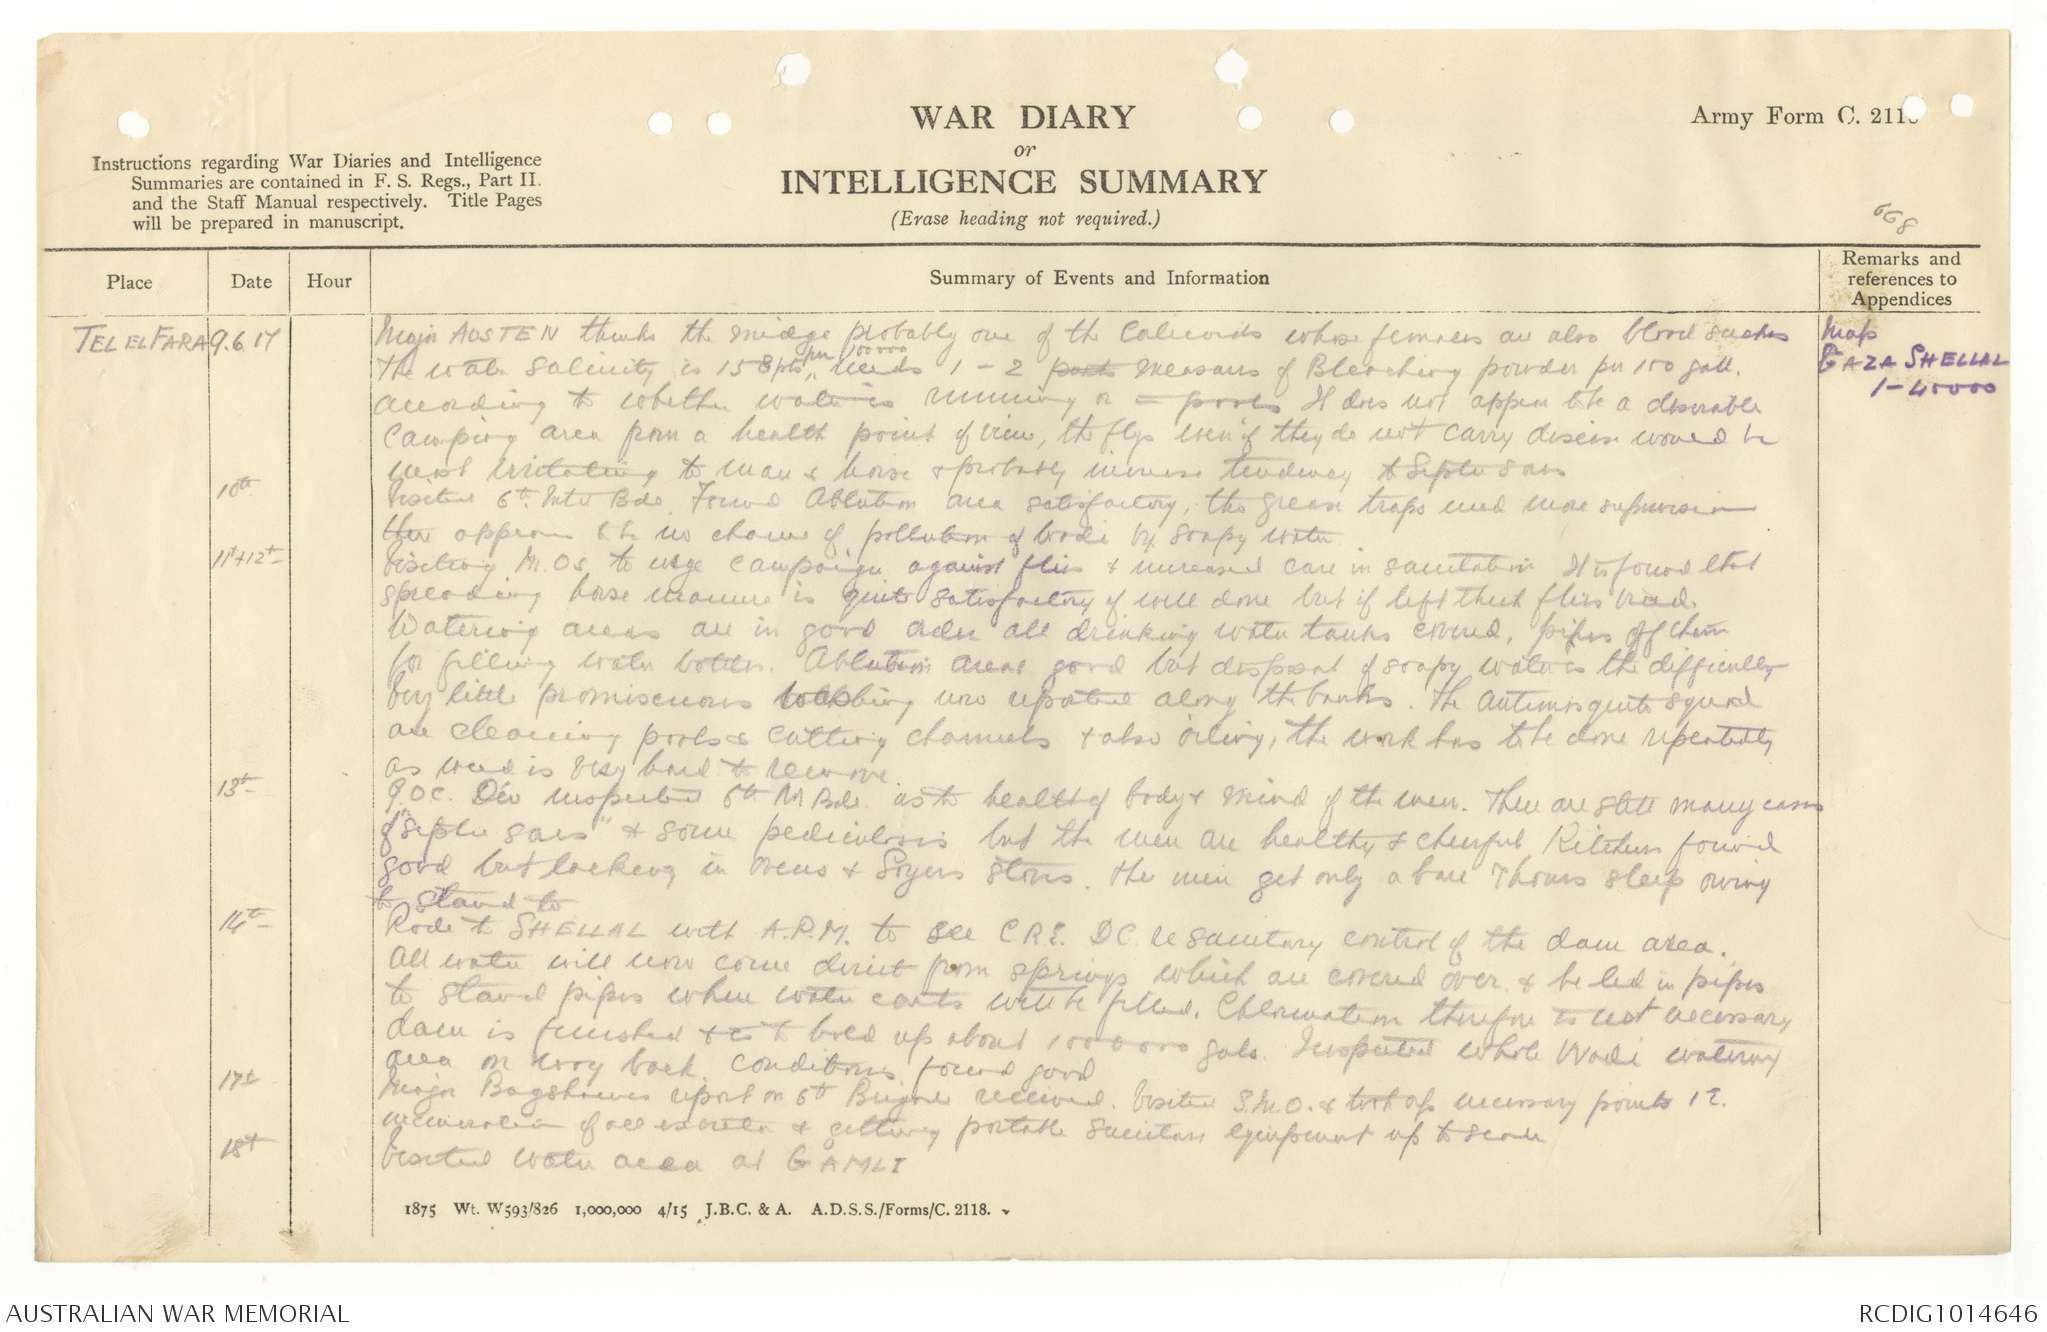 WAR DIARY
or
INTELLIGENCE SUMMARY
(Erase heading not required.)
Army Form C. 2118
Instructions regarding War Diaries and Intelligence
Summaries are contained in F. S. Regs., Part II.
and the Staff Manual respectively. Title Pages
will be prepared in manuscript.
668
Place Date Hour Summary of Events and Information Remarks and references to Appendices
TEL EL FARA 9.6.17 Major AUSTEN thinks the midge probably one of the whose females are also blood suckers
Map
GAZA SHELLAL
1-40000
The water salinity is 158 pts per 100000 needs 1-2 parts measures of Bleaching powder per 100 gall.
according to whether water is running or = pools It does not appear to be a desirable
camping area from a health point of view, the flys even if they do not carry disease would be
most irritating to man & horse & probably increase tendency to Septic sores
10th Visited 6th Mtd Bde. Found Ablution area satisfactory, the grease traps need more supervision
there appears to be no chance of pollution of Wadi by soapy water
11th+12th Visiting M.Os. to urge campaign against flies & increased care in sanitation It is found that
spreading horse manure is quite satisfactory if well done but if left thick flies breed.
Watering areas are in good order all drinking water tanks covered, pipes off them
for filling water bottles. Ablution areas good but disposal of soapy water is the difficulty
Very little promiscuous washing now reported along the banks. The antimosquito squad
are cleaning pools & cutting channels & also oiling, the work has to be done repeatedly
as weed is very hard to remove.
13th G.O.C. Div inspected 6th M Bde. as to health of body & mind of the men. There are still many cases
of "septic sores" & some pediculosis but the men are healthy & cheerful Kitchens found
good but lacking in ovens & Soyers stoves. The men get only a bare 7 hours sleep owing
to stand to
14th Rode to SHELLAL with A.P.M. to see C.R.E. D.C. re sanitary control of the dam area.
All water will now come direct from springs which are covered over & be led in pipes
to stand pipes where water carts will be filled. Chlorination therefore is not necessary
dam is finished & is to hold up about 1000000 gals. Inspected whole Wadi watering
area on way back. conditions found good
17th Major Bagshawes report on 6th Brigade received. Visited S.M.O. & took up necessary points i.e.
incineration of all excreta & getting portable sanitary equipment up to scale
18th Visited water area at GAMLI
1875 Wt. W593/826 1,000,000 4/15 J.B.C. & A. A.D.S.S./Forms/C. 2118.
AUSTRALIAN WAR MEMORIAL RCDIG1014646